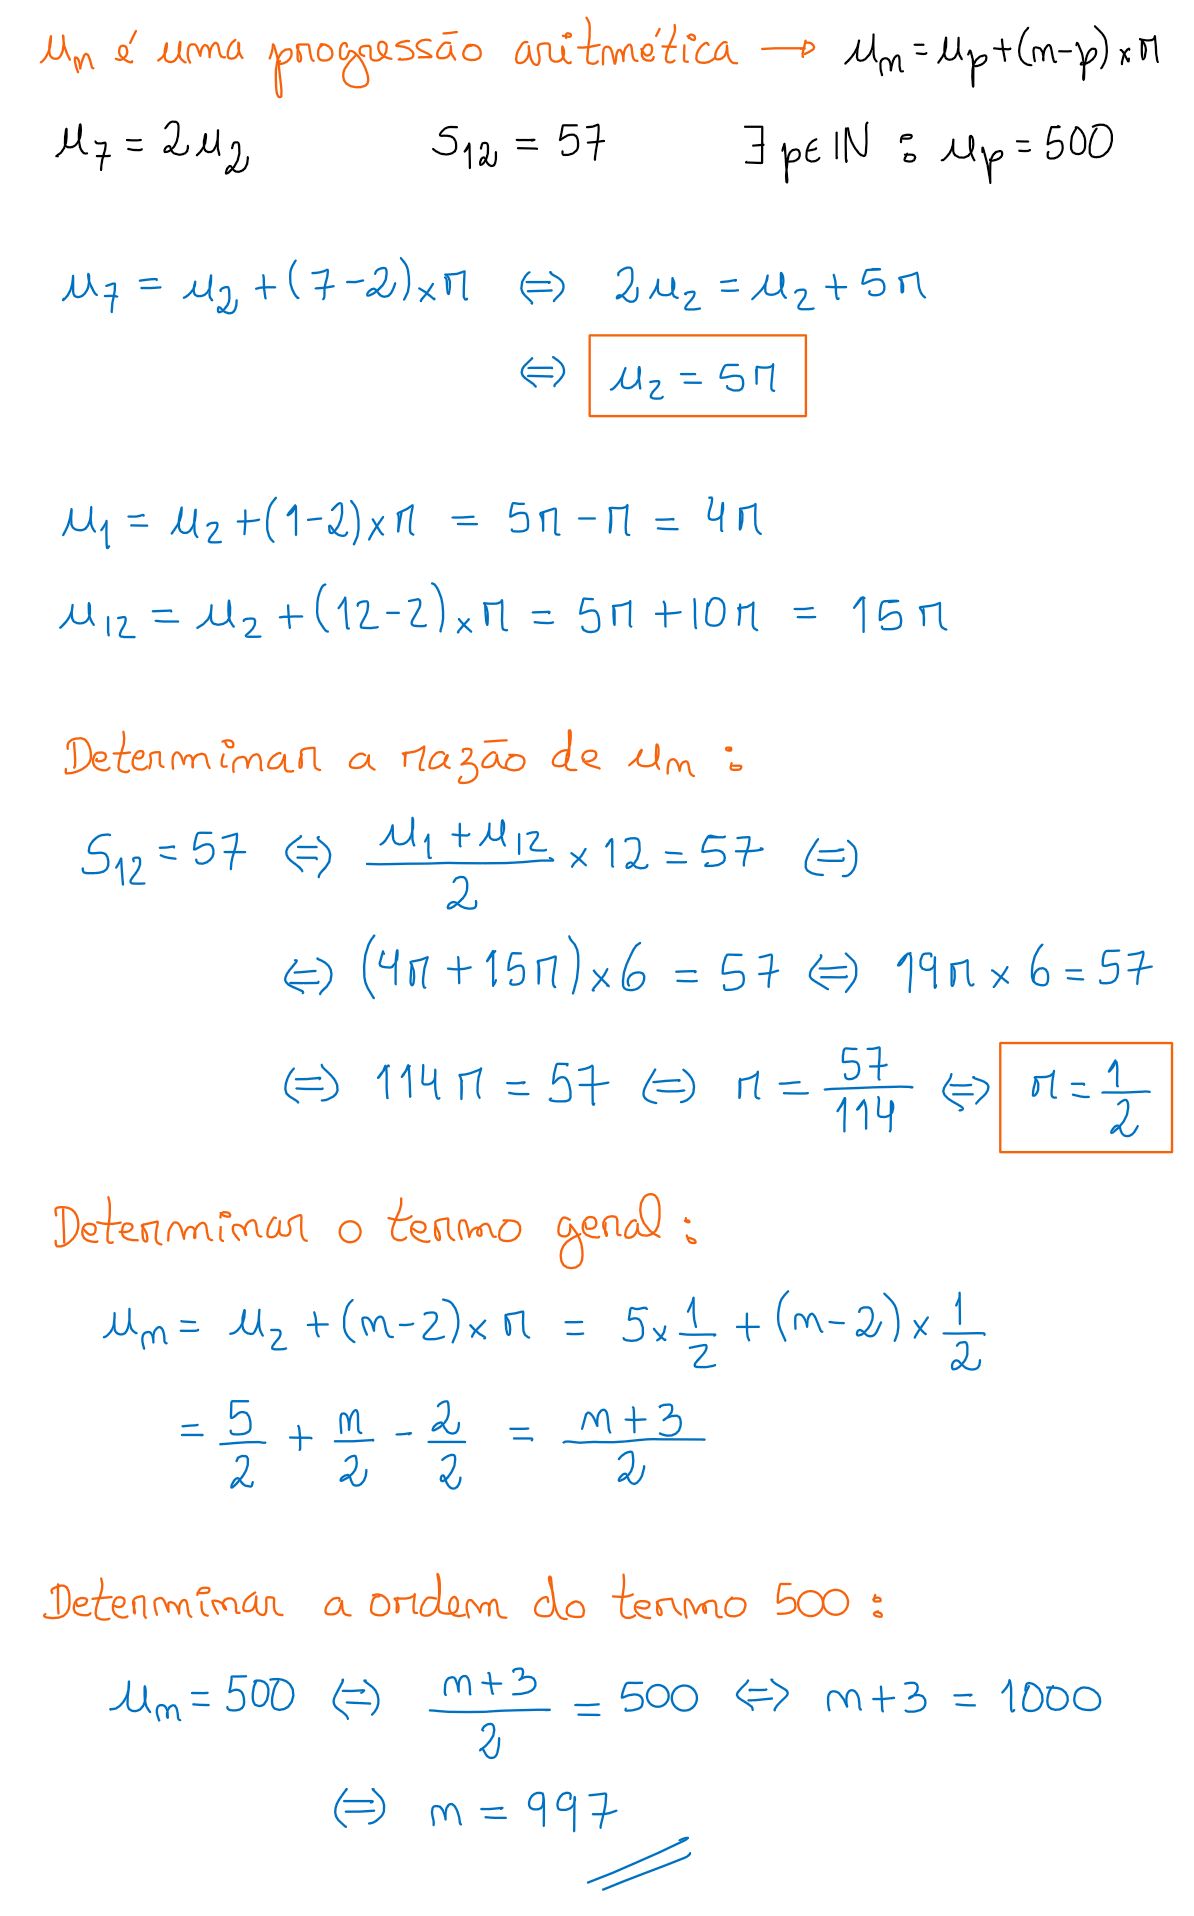 uₙ é uma progressão aritmética → uₙ = uₚ + (n-p) × r
u₇ = 2u₂ S₁₂ = 57 ∃ p∈ℕ : uₚ = 500
u₇ = u₂ + (7-2) × r ⇔ 2u₂ = u₂ + 5r
⇔ u₂ = 5r
u₁ = u₂ + (1-2) × r = 5r - r = 4r
u₁₂ = u₂ + (12-2) × r = 5r + 10r = 15r
Determinar a razão de uₙ :
S₁₂ = 57 ⇔ (u₁ + u₁₂)/2 × 12 = 57 ⇔
⇔ (4r + 15r) × 6 = 57 ⇔ 19r × 6 = 57
⇔ 114r = 57 ⇔ r = 57/114 ⇔ r = 1/2
Determinar o termo geral :
uₙ = u₂ + (n-2) × r = 5 × 1/2 + (n-2) × 1/2
= 5/2 + n/2 - 2/2 = (n+3)/2
Determinar a ordem do termo 500 :
uₙ = 500 ⇔ (n+3)/2 = 500 ⇔ n+3 = 1000
⇔ n = 997